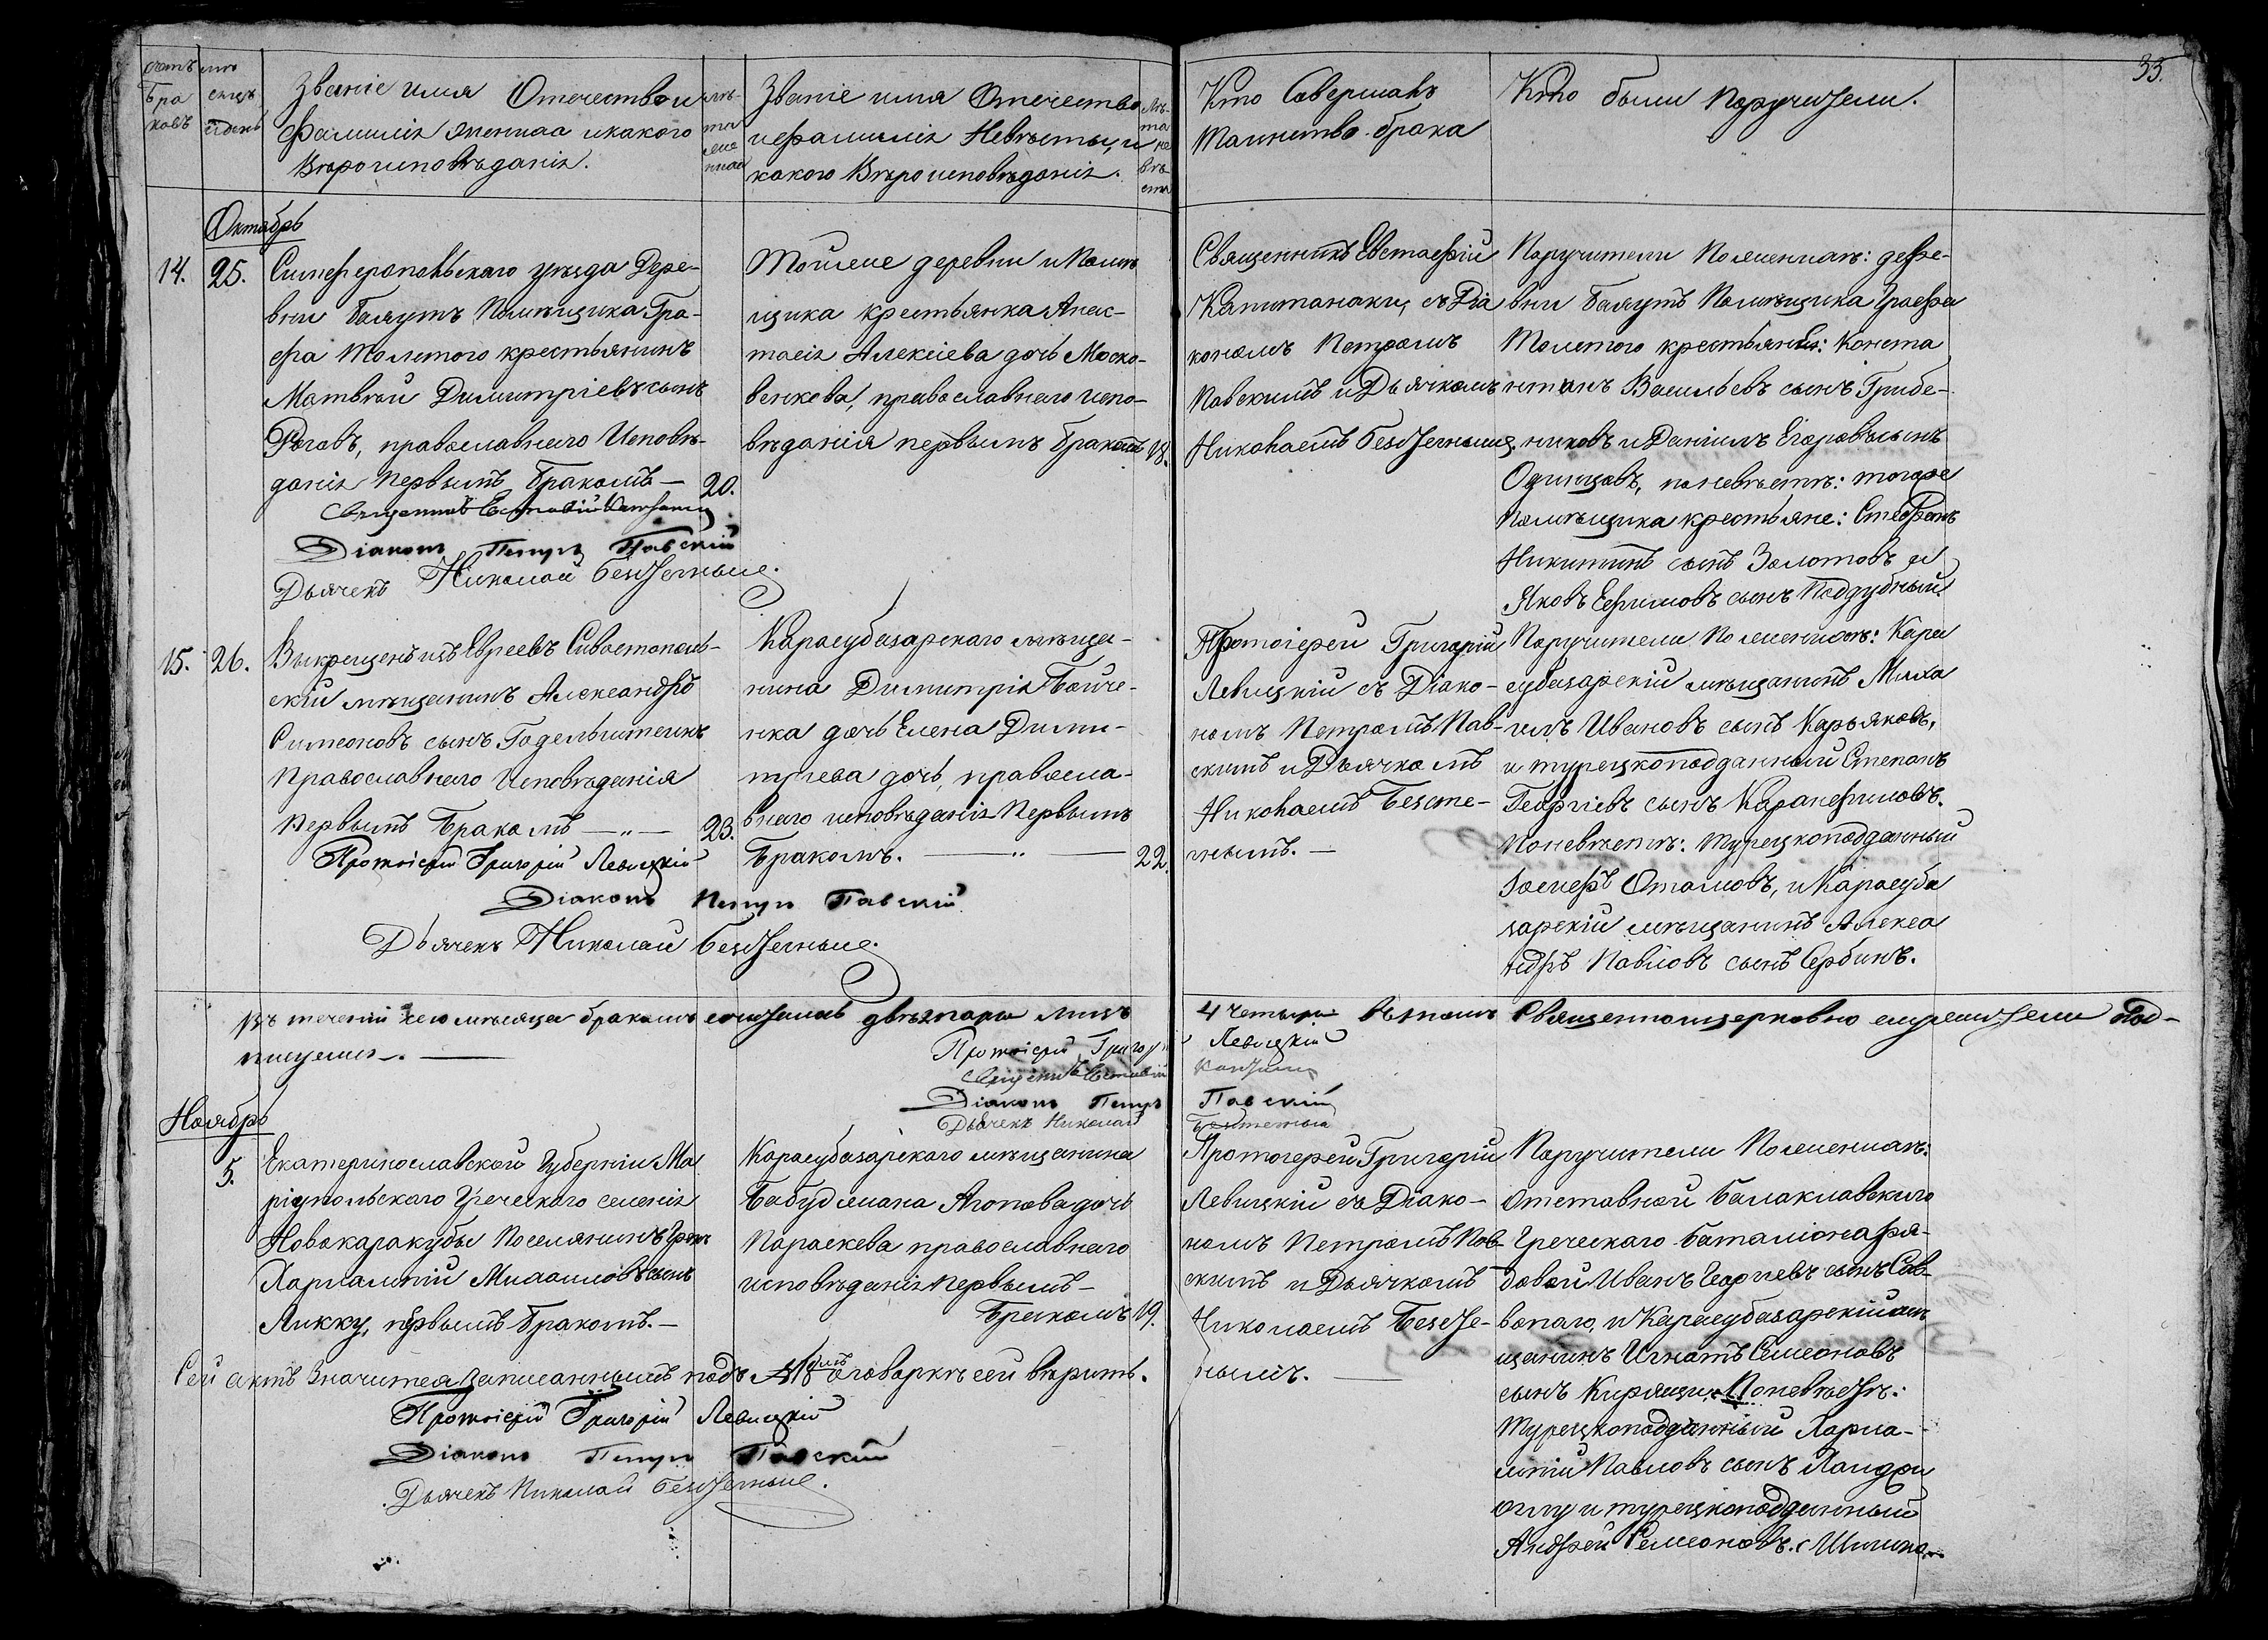 33.
счетъ
бра
ковъ
мѣ
сяцъ
и день
Званіе имя Отечество и
фамилія жениха и какого
Вѣроисповѣданія.
лѣ-
та
же
ниха
Званіе имя Отечество
и фамилія Невѣсты, и
какого Вѣроисповѣданія.
лѣ-
та не
вѣ
сты
Кто Совершалъ
Таинство брака
Кто были Поручители.
Октябрь
14.
25.
Симферопольскаго уѣзда Дере-
вни Баяутъ Помѣщика Гра-
фа Толстого крестьянинъ
Матвѣй Димитріевъ сынъ
Рогавъ, православнаго Исповѣ-
данія первымъ бракомъ —
20.
Священникъ
Діаконъ Петръ Павскій
Дьячекъ Николай Безстечные.
Тойже деревни и Помѣ
щика крестьянка Анас-
тасія Алексіева дочь Моско-
венкова, православнаго испо-
вѣданія первымъ бракомъ
18.
Священникъ Евстафій
Капитанаки, съ Діа
кономъ Петромъ
Павскимъ и Дьячкомъ
Николаемъ
Поручители По женихѣ: дере-
вни Баяутъ Помѣщика Графа
Толстого крестьяне: Конста
нтинъ Васильевъ сынъ Грибе-
никовъ и Даніилъ Егоровъ сынъ
Одинцовъ, поневѣстѣ: тогоже
Помѣщика крестьяне: Стефанъ
Никитинъ сынъ Золотовъ и
Яковъ Ефимовъ сынъ Поддубный.
15.
26.
Выкрещенъ изъ Евреевъ Сивастополь-
скій мѣщанинъ Александръ
Симеоновъ сынъ Годельштеинъ
Православнаго Исповѣданія
Первымъ Бракомъ — „ —
23.
Протоіерей Григорій Левицкій
Діаконъ Петръ Павскій
Дьячекъ Николай
Карасубазарскаго мѣща-
нина Димитрія Бойче-
нка дочь Елена Дими-
тріева дочь, правосла-
внаго исповѣданія Первымъ
Бракомъ. — „ —
22.
Протоіерей Григорій
Левицкій съ Діако-
номъ Петромъ Пав-
скимъ и Дьячкомъ
Николаемъ Безсте-
чнымъ. —
Поручители По женихѣ: Кара
субазарскій мѣщанинъ Миха
илъ Ивановъ сынъ Карьяковъ,
и турецкоподданный Степанъ
Георгіевъ сынъ Каранфиловъ.
Поневѣстѣ: Турецкоподданный
Іосифъ Отамовъ, и Карасуба
зарскій мѣщанинъ Алекса
ндръ Павловъ сынъ Сербинъ.
Въ теченіи сего мѣсяца бракомъ сочеталась двѣ пары лицъ 4 четыре въ томъ Священноцерковно служители Под-
писуемся. —
Протоіерей Григорій Левицкій
Священникъ Евстафій
Діаконъ Петръ Павскій
Дьячекъ Николай
Ноябрь
5.
Екатеринославской Губерніи Ма
ріупольскаго Греческаго селенія
Новокаракубы Поселянинъ Грекъ
Харлампій Михаиловъ сынъ
Ликку, первымъ бракомъ. —
Карасубазарскаго мѣщанина
Бабуджана Агопова дочь
Параскева православнаго
исповѣданія Первымъ —
Бракомъ
19.
Протоіерей Григорій
Левицкій съ Діако-
номъ Петромъ Пав-
скимъ и Дьячкомъ
Николаемъ Безсте-
чнымъ. —
Поручители По женихѣ:
отставной Балаклавскаго
Греческаго баталіона ря-
довой Иванъ Георгіевъ сынъ Сав-
вопаго, и Карасубазарскій мѣ
щанинъ Игнатъ Симеоновъ
сынъ Киряци. Поневѣстѣ:
Турецкоподданный Харла-
мпій Павловъ сынъ Хандри
оглу и турецкоподданный
Андрей Семеновъ
Сей актъ Значится Записаннымъ подъ № 18мъ оговаркѣ сей вѣрить.
Протоіерей Григорій Левицкій
Діаконъ Петръ Павскій
Дьячекъ Николай